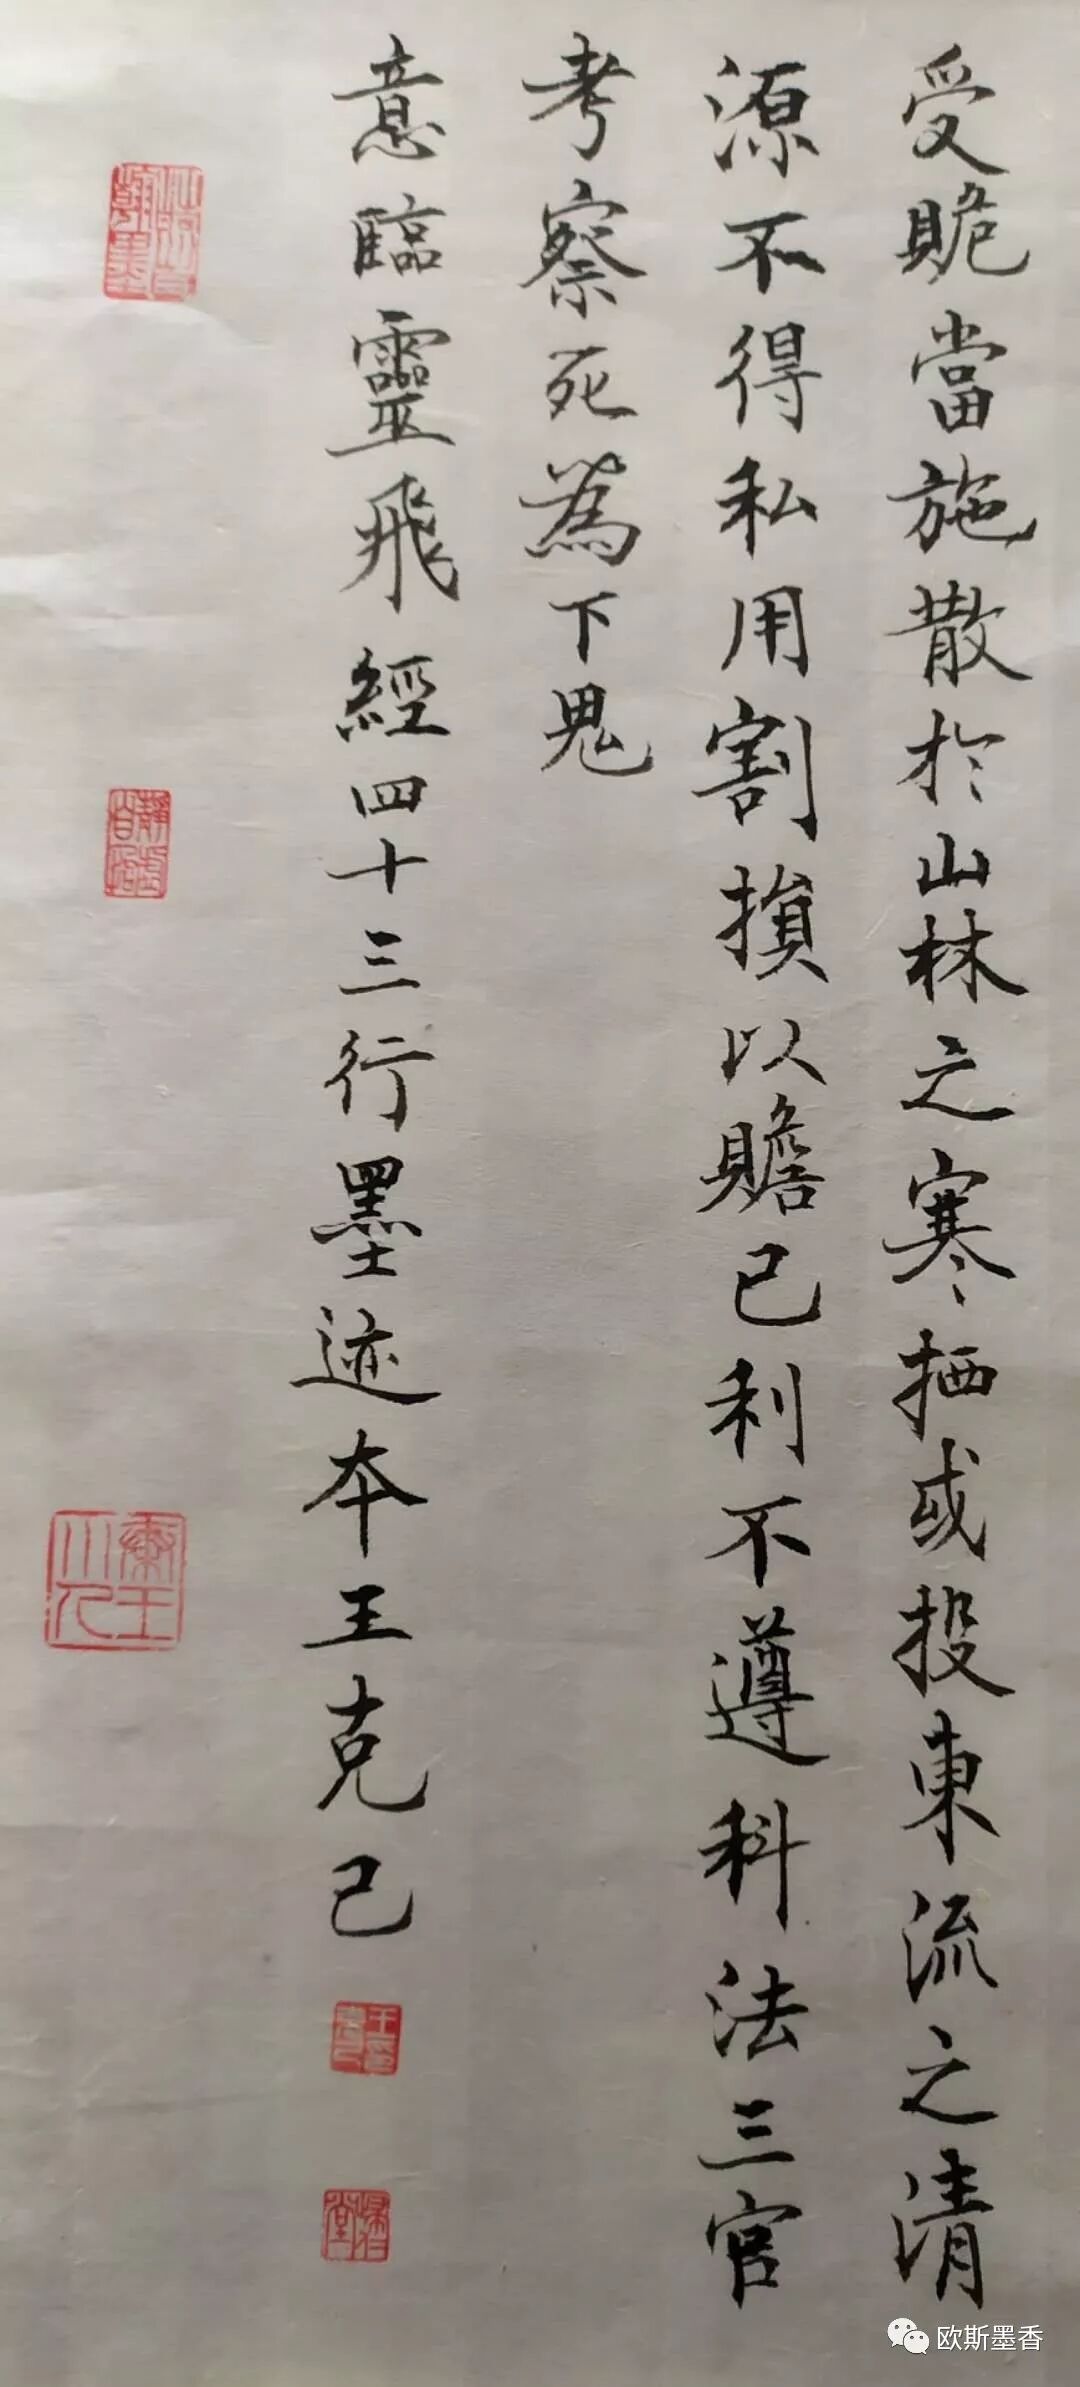 受賄當施散於山林之寒栖或投東流之清
源不得私用割損以贍己利不遵科法三官
考察死為下鬼
意臨靈飛經四十三行墨迹本王克己
欧斯墨香